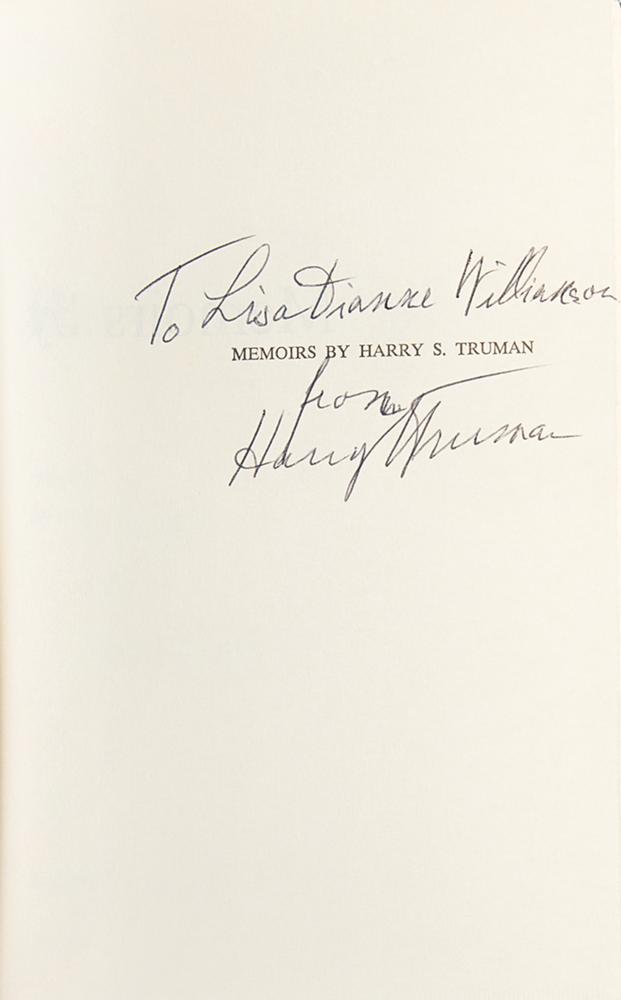 To Lisa Dianne Williamson
MEMOIRS BY HARRY S. TRUMAN
from
Harry Truman